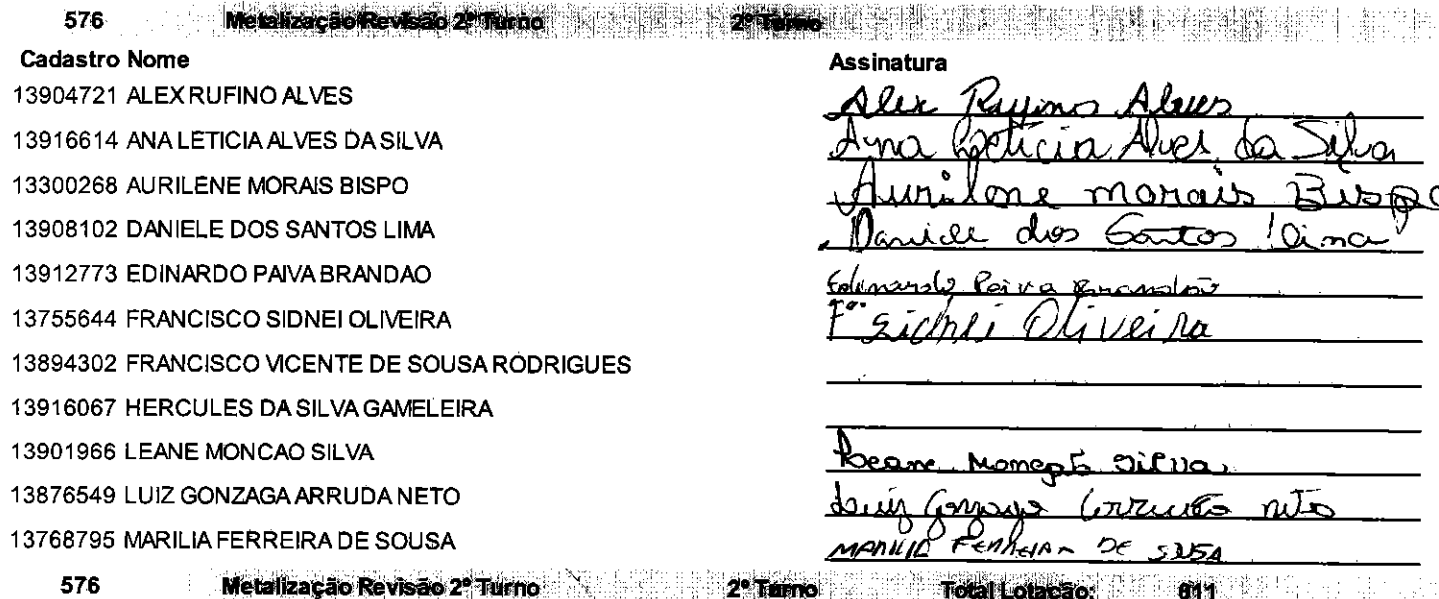 576 Metalização Revisão 2º Turno 2º Turno
Cadastro Nome Assinatura
13904721 ALEX RUFINO ALVES Alex Rufino Alves
13916614 ANA LETICIA ALVES DA SILVA Ana Letícia Alves da Silva
13300268 AURILENE MORAIS BISPO Aurilene morais Bispo
13908102 DANIELE DOS SANTOS LIMA Daniele dos Santos lima
13912773 EDINARDO PAIVA BRANDAO Edinardo Paiva Brandão
13755644 FRANCISCO SIDNEI OLIVEIRA Fco Sidnei Oliveira
13894302 FRANCISCO VICENTE DE SOUSA RODRIGUES
13916067 HERCULES DA SILVA GAMELEIRA
13901966 LEANE MONCAO SILVA Leane Monção Silva
13876549 LUIZ GONZAGA ARRUDA NETO Luiz Gonzaga Arruda neto
13768795 MARILIA FERREIRA DE SOUSA MARILIA FERREIRA DE SOUSA
576 Metalização Revisão 2º Turno 2º Turno Total Lotação: 811